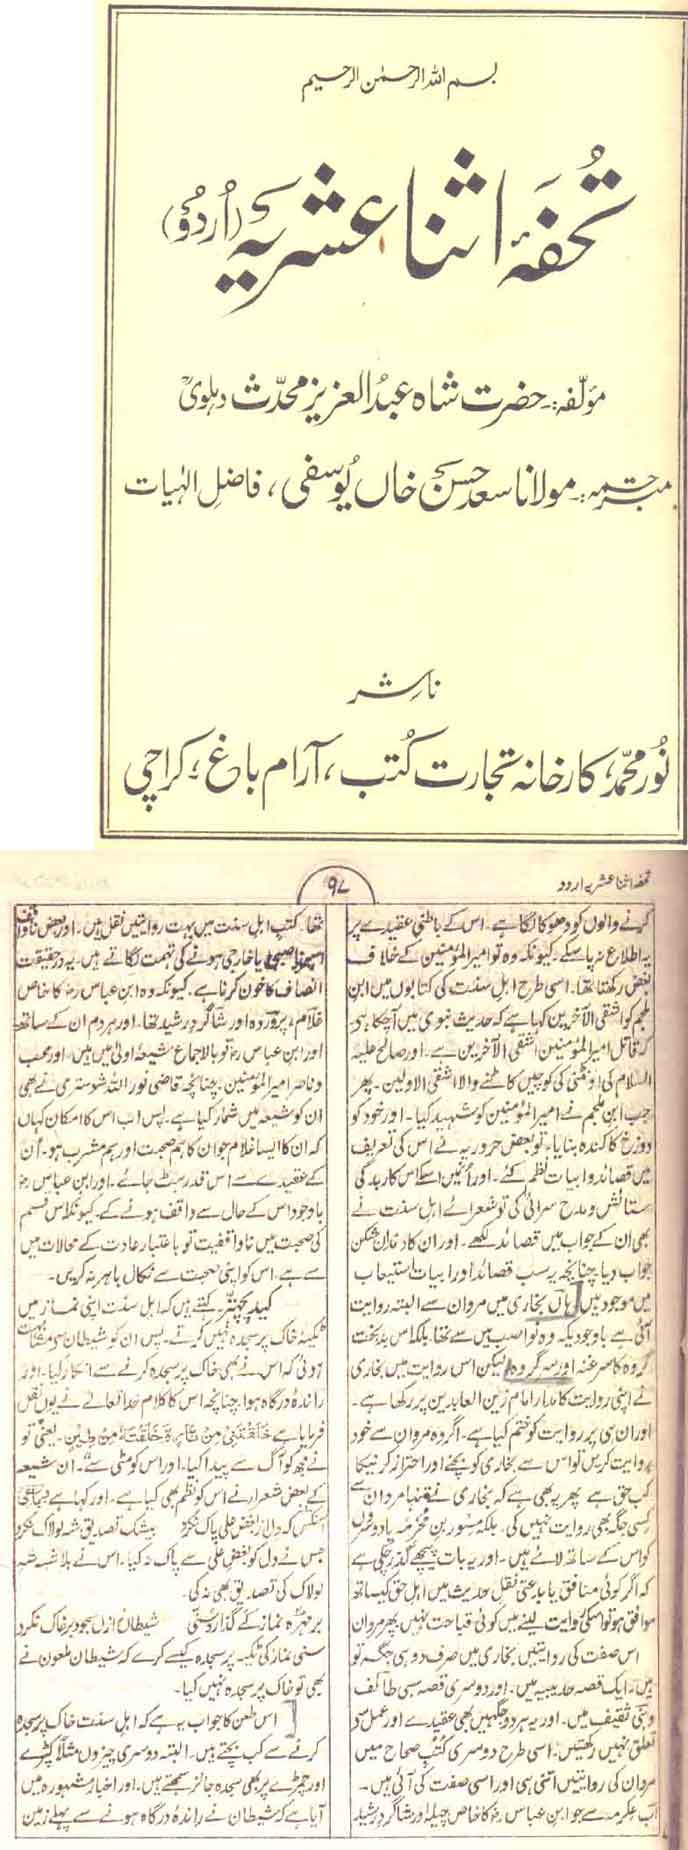 بسم اللہ الرحمٰن الرحیم
تحفۂ اثنا عشریہ (اردو)
مؤلفہ:۔ حضرت شاہ عبدالعزیز محدّث دہلویؒ
مترجمہ:۔ مولانا سعد حسن خاں یوسفی، فاضلِ الہٰیات
ناشر
نور محمد، کارخانہ تجارت کتب، آرام باغ، کراچی
تحفہ اثنا عشریہ اردو
۹۷
کرنے والوں کو دھوکا لگا ہے۔ اس کے باطنی عقیدے پر
یہ اطلاع نہ پا سکے۔ کیونکہ وہ تو امیر المؤمنین کے خلاف
بغض رکھتا تھا۔ اسی طرح اہل سنت کی کتابوں میں ابن
ملجم کو اشقی الآخرین کہا ہے کہ حدیث نبوی میں آچکا ہے
کہ قاتل امیر المؤمنین اشقی الآخرین ہے۔ اور صالح علیہ
السلام کی اونٹنی کی کوچیں کاٹنے والا اشقی الاولین۔ پھر
جب ابن ملجم نے امیر المؤمنین کو شہید کیا۔ اور خود کو
دوزخ کا کندہ بنایا؛ تو بعض حروریہ نے اس کی تعریف
میں قصائد و ابیات نظم کئے۔ اور اُنہیں اسکے اس کار بد کی
ستائش و مدح سرائی کی تو شعرائے اہل سنت نے
بھی ان کے جواب میں قصائد لکھے۔ اور ان کا دندان شکن
جواب دیا چنانچہ یہ سب قصائد اور ابیات استیعاب
میں موجود ہیں [ہاں بخاری میں مروان سے البتہ روایت
آئی ہے باوجودیکہ وہ نواصب میں سے تھا۔ بلکہ اس بدبخت
گروہ کا سرغنہ اور سر گروہ۔ لیکن اس روایت میں بخاری
نے اپنی روایت کا مدار امام زین العابدین پر رکھا ہے۔
اور ان ہی پر روایت کو ختم کیا ہے۔ اگر وہ مروان سے خود
روایت کریں تو اس سے بخاری کو بچنے اور احتراز کرنیکا
کب حق ہے پھر یہ بھی ہے کہ بخاری نے تنہا مروان سے
کسی جگہ بھی روایت نہیں کی۔ بلکہ مسور بن مخرمہ یا دوسروں
کو اس کے ساتھ لائے ہیں۔ اور یہ بات پیچھے گذر چکی ہے
کہ اگر کوئی منافق یا بدعتی نقل حدیث میں اہل حق کیساتھ
موافق ہو تو اسکی روایت لینے میں کوئی قباحت نہیں پھر مروان
اس صفت کی روایتیں بخاری میں صرف دو ہی جگہ تو
ہیں۔ ایک قصہ حدیبیہ میں۔ اور دوسری قصہ سبی طائف
وبنی ثقیف میں۔ اور یہ ہر دو جگہیں بھی عقیدے اور عمل سے
تعلق نہیں رکھتیں۔ اسی طرح دوسری کتب صحاح میں
مروان کی روایتیں اتنی ہی اور اسی صفت کی آئی ہیں۔
اب عکرمہ سے جو ابن عباس رضؓ کا خاص چیلہ اور شاگرد رشید
تھا۔ کتب اہل سنت میں بہت روایتیں نقل ہیں۔ اور بعض ناواقف
اسپر ناصبی یا خارجی ہونے کی تہمت لگاتے ہیں۔ یہ درحقیقت
انصاف کا خون کرنا ہے۔ کیونکہ وہ ابن عباس رضؓ کا خاص
غلام، پروردہ اور شاگرد رشید تھا۔ اور ہر دم ان کے ساتھ
اور ابن عباس رضؓ تو بالاجماع شیعہ اولیٰ میں ہیں۔ اور محب
و ناصر امیر المؤمنین۔ چنانچہ قاضی نور اللہ شوستری نے بھی
ان کو شیعہ میں شمار کیا ہے۔ پس اب اس کا امکان کہاں
کہ ان کا ایسا غلام جو ان کا ہم صحبت اور ہم مشرب ہو۔ اُن
کے عقیدے سے اس قدر ہٹ جائے۔ اور ابن عباس رضؓ
باوجود اس کے حال سے واقف ہونے کے۔ کیونکہ اس قسم
کی صحبت میں ناواقفیت تو باعتبار عادت کے محالات میں
سے ہے۔ اس کو اپنی صحبت سے نکال باہر نہ کریں۔
کید پچھتر۔ کہتے ہیں کہ اہل سنت اپنی نماز میں
خاک پر سجدہ نہیں کرتے۔ پس ان کو شیطان سے مشابہت
ہوئی کہ اس نے بھی خاک پر سجدہ کرنے سے انکار کیا۔ اور
راندۂ درگاہ ہوا۔ چنانچہ اس کا کلام خدا تعالےٰ نے یوں نقل
فرمایا ہے خَلَقْتَنِیْ مِنْ نَّارٍ وَّ خَلَقْتَہٗ مِنْ طِیْنٍ۔ یعنی تو
نے مجھ کو آگ سے پیدا کیا۔ اور اس کو مٹی سے۔ ان شیعہ
کے بعض شعراء نے اس کو نظم بھی کیا ہے۔ اور کہا ہے
آنکس کہ دل از بغض علی پاک نکرد بیشک تصدیق شہ لولاک نکرد
جس نے دل کو بغض علی سے پاک نہ کیا۔ اس نے بلا شبہ شہ
لولاک کی تصدیق بھی نہ کی۔
شیطان ازل سجود بر خاک نکرد
سنی نماز کی تکیہ پر سجدہ کیسے کرے کہ شیطان ملعون نے
بھی تو خاک پر سجدہ نہیں کیا۔
[اس طعن کا جواب یہ ہے کہ اہل سنت خاک پر سجدہ
کرنے سے کب بچتے ہیں۔ البتہ دوسری چیزوں مثلاً کپڑے
اور چمڑے پر بھی سجدہ جائز سمجھتے ہیں۔ اور اخبار مشہورہ میں
آیا ہے کہ شیطان نے راندۂ درگاہ ہونے سے پہلے زمین